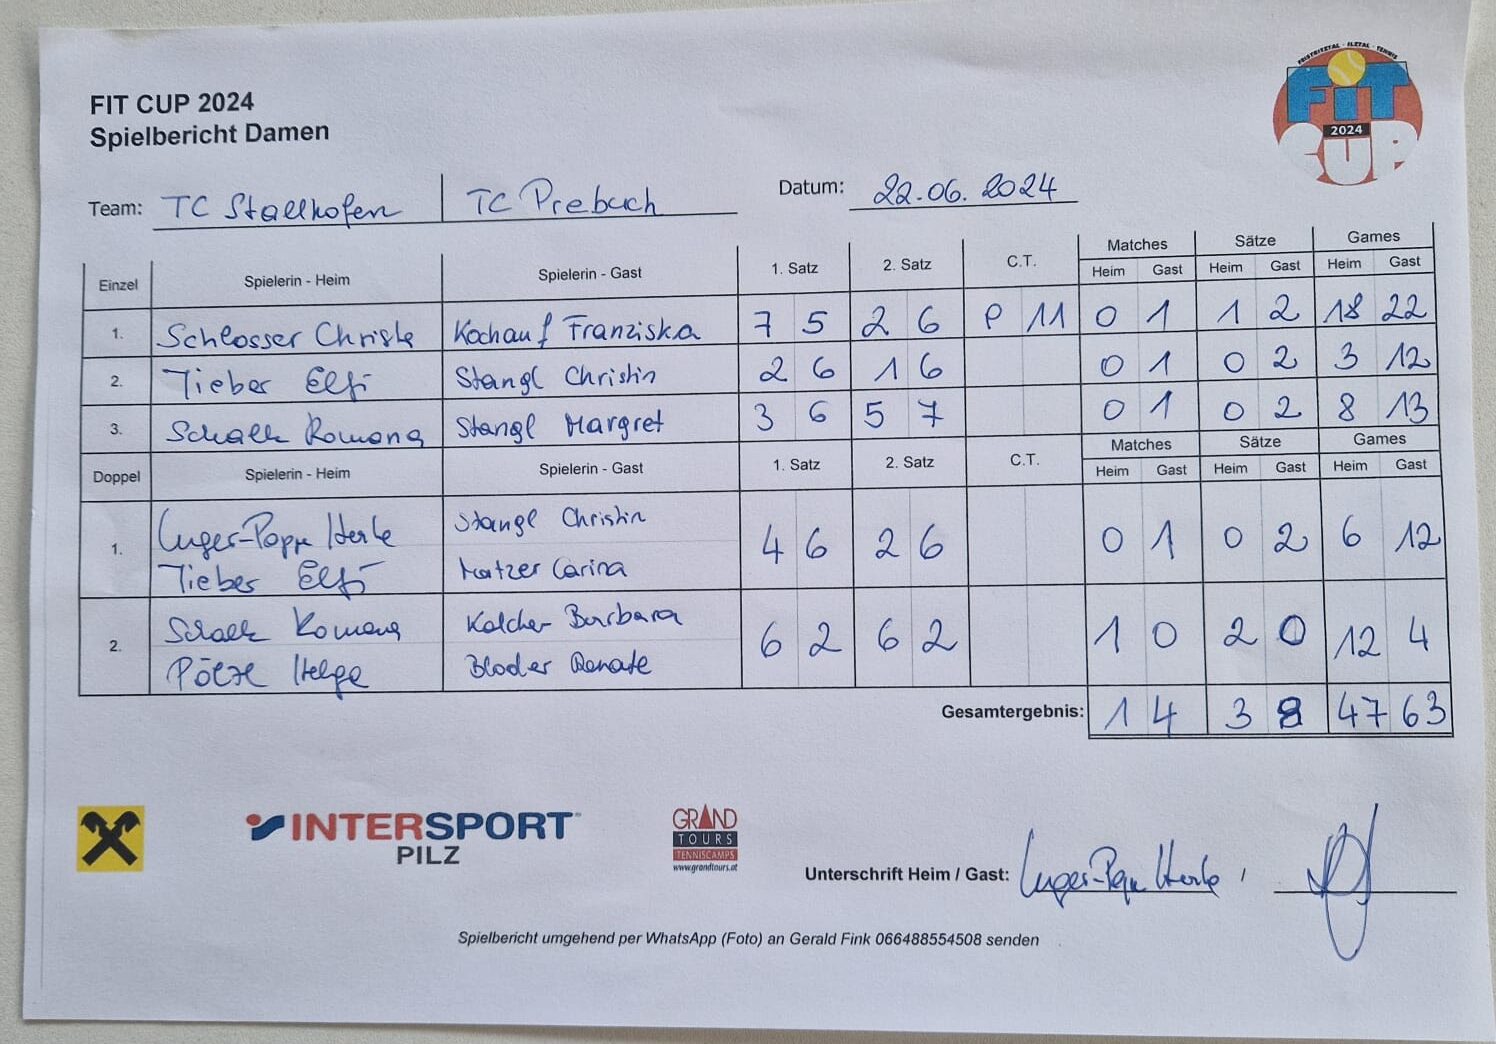 FEISTRITZTAL - ILZTAL - TENNIS
FiT
2024
CUP
FIT CUP 2024
Spielbericht Damen
Team: TC Stallhofen TC Prebuch Datum: 22.06.2024
Einzel Spielerin - Heim Spielerin - Gast 1. Satz 2. Satz C.T. Matches Sätze Games
Heim Gast Heim Gast Heim Gast
1. Schlosser Christa Kochauf Franziska 7 5 2 6 9 11 0 1 1 2 18 22
2. Tieber Elfi Stangl Christin 2 6 1 6 0 1 0 2 3 12
3. Schalk Romana Stangl Margret 3 6 5 7 0 1 0 2 8 13
Doppel Spielerin - Heim Spielerin - Gast 1. Satz 2. Satz C.T. Matches Sätze Games
Heim Gast Heim Gast Heim Gast
1. Luger-Popp Herta Stangl Christin 4 6 2 6 0 1 0 2 6 12
Tieber Elfi Matzer Carina
2. Schalk Romana Kalcher Barbara 6 2 6 2 1 0 2 0 12 4
Pölzl Helga Bloder Renate
Gesamtergebnis: 1 4 3 8 47 63
INTERSPORT
PILZ
GRAND
TOURS
TENNISCAMPS
www.grandtours.at
Unterschrift Heim / Gast: Luger-Popp Herta /
Spielbericht umgehend per WhatsApp (Foto) an Gerald Fink 066488554508 senden